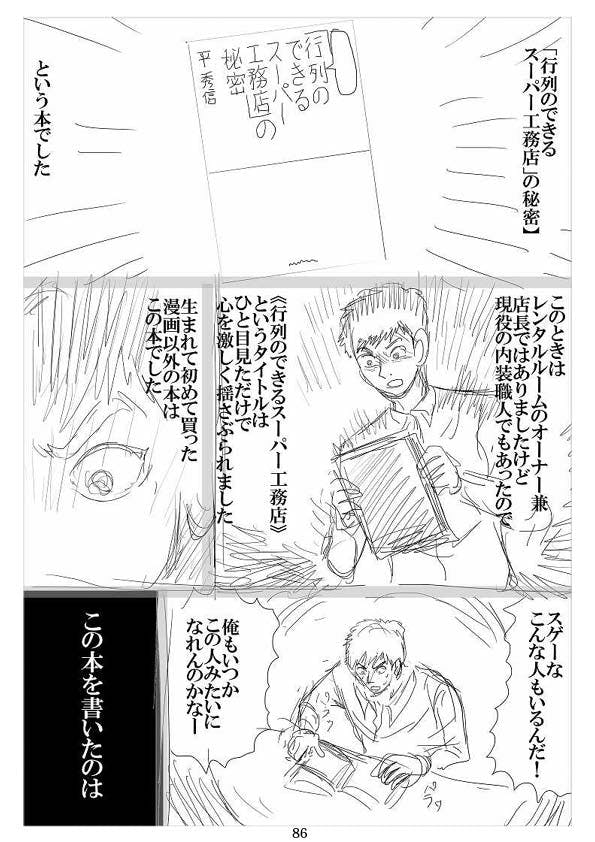 「行列のできる
スーパー工務店」の秘密】
行列の
できる
スーパー
工務店」の
秘密
平 秀信
という本でした
このときは
レンタルルームのオーナー兼
店長ではありましたけど
現役の内装職人でもあったので
《行列のできるスーパー工務店》
というタイトルは
ひと目見ただけで
心を激しく揺さぶられました
生まれて初めて買った
漫画以外の本は
この本でした
スゲーな
こんな人もいるんだ！
俺もいつか
この人みたいに
なれんのかなー
ペラッ
この本を書いたのは
86